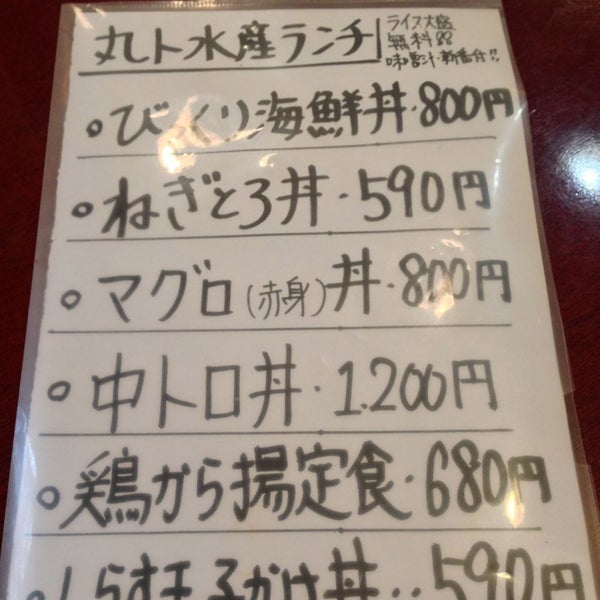 丸ト水産ランチ
ライス大盛
無料!!
味噌汁・新香付!!
びっくり海鮮丼・800円
ねぎとろ丼・590円
マグロ(赤身)丼・800円
中トロ丼・1.200円
鶏から揚定食・680円
しらす玉子かけ丼・・590円